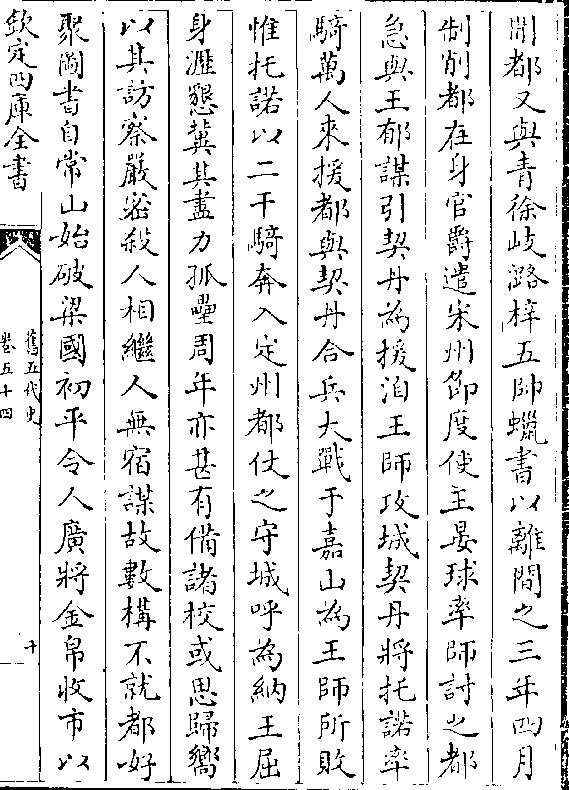 間都又與青徐岐潞梓五帥蠟書以離間之三年四月
制削都在身官爵遣宋州節度使王晏球率師討之都
急與王郁謀引契丹為援洎王師攻城契丹將托諾率
騎萬人來援都與契丹合兵大戰于嘉山為王師所敗
惟托諾以二千騎奔入定州都仗之守城呼為納王屈
身瀝懇冀其盡力孤壘周年亦甚有備諸校或思歸嚮
以其訪察嚴密殺人相繼人無宿謀故數構不就都好
聚圖書自常山始破梁國初平令人廣將金帛收市以
欽定四庫全書
舊五代史
卷五十四
十